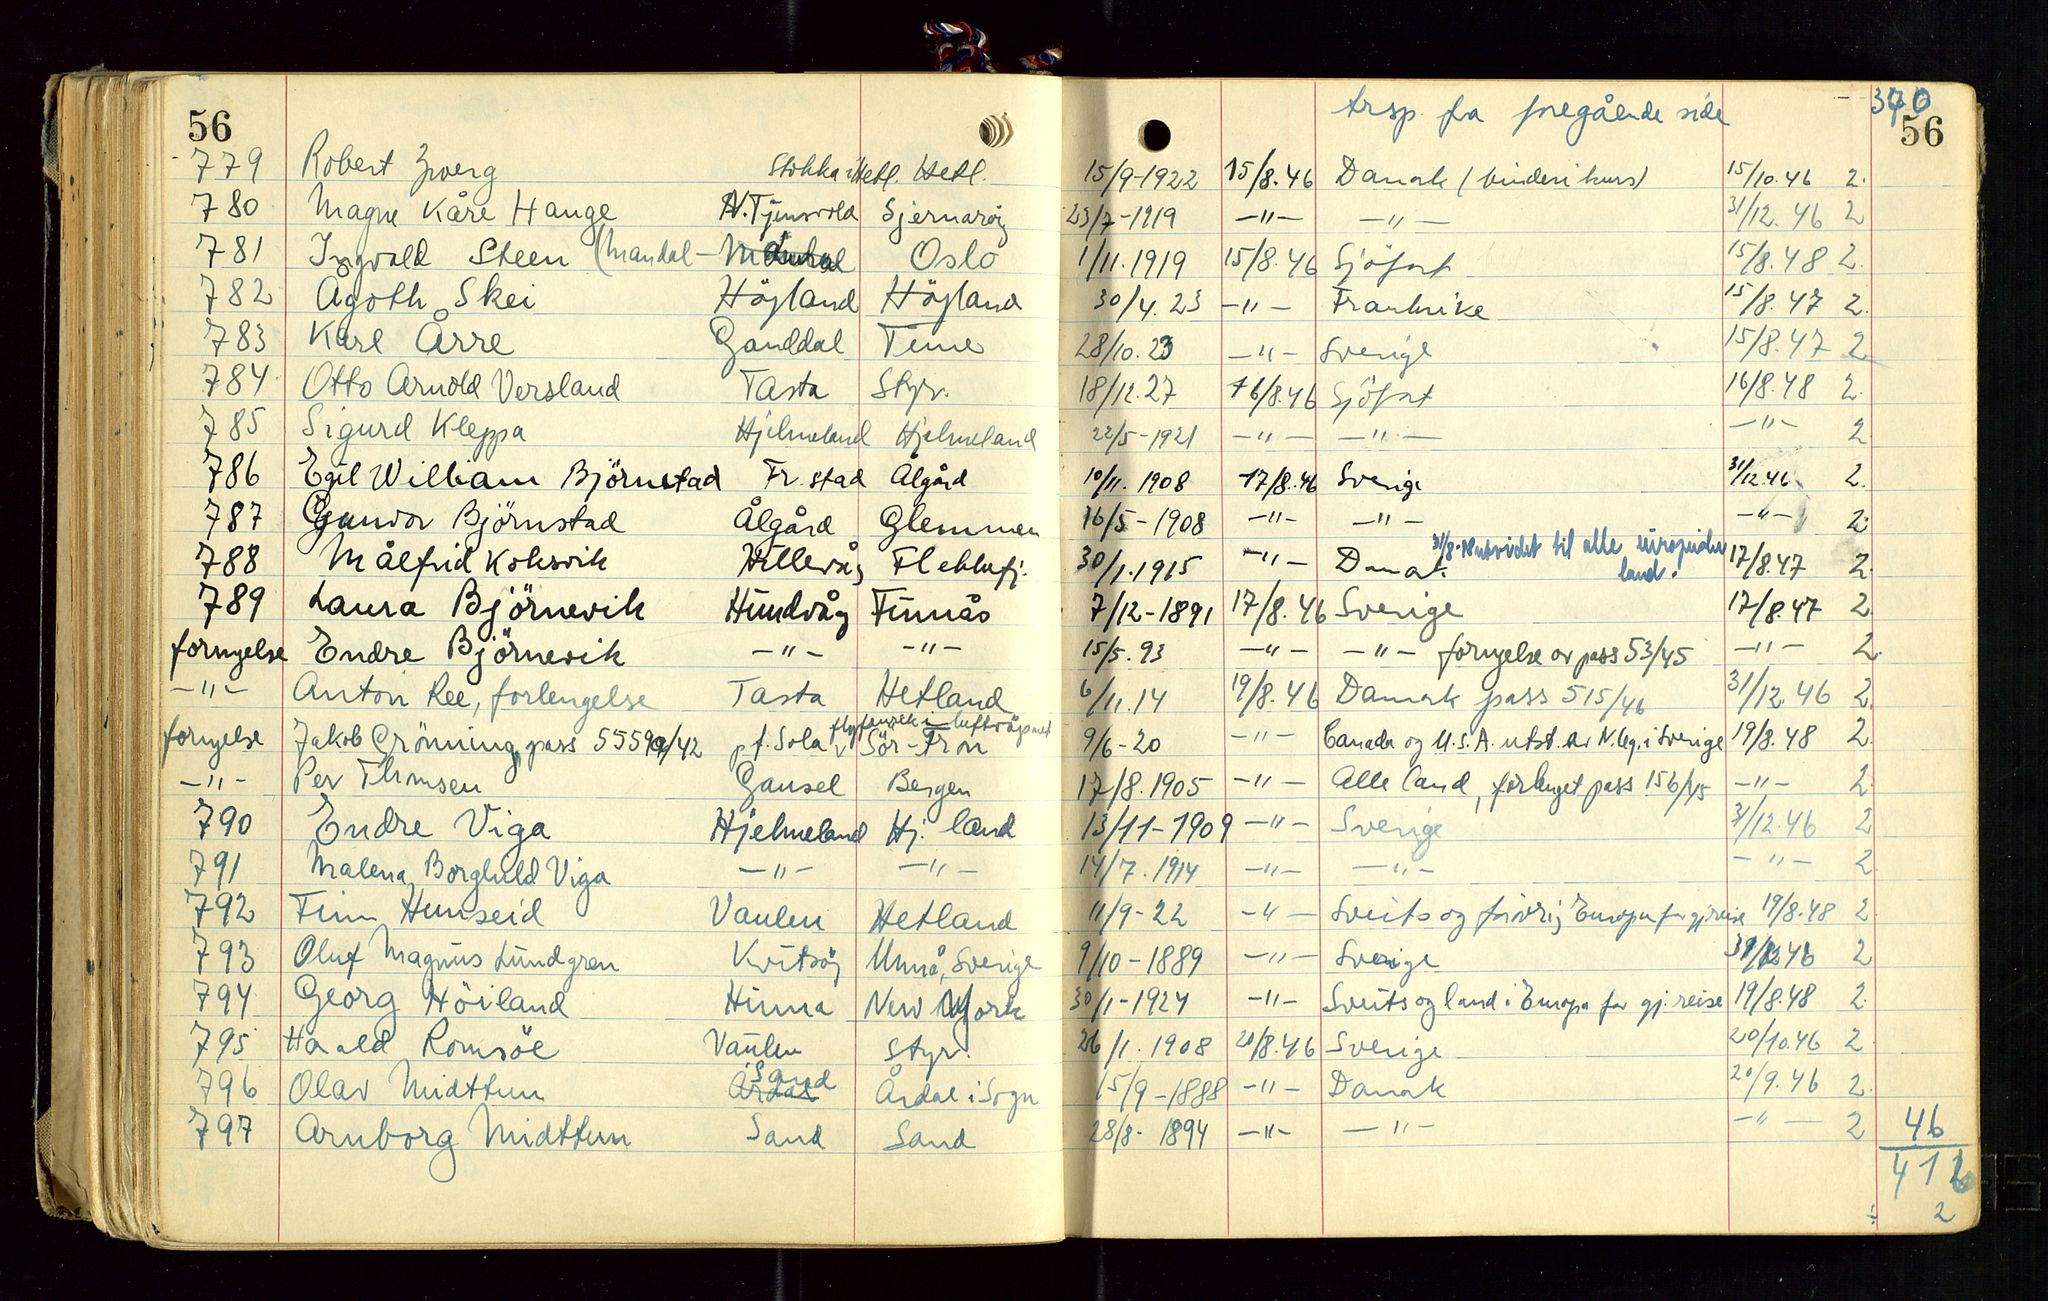 56 trsp. fra foregående side 370 56
779 Robert Zwerg Stokka i Hetl. Hetl. 15/9-1922 15/8.46 Danmark (binderikurs) 15/10.46 2.
780 Magne Kåre Hauge N. Tjensvold Sjernarøy 23/7-1919 -"- -"- 31/12.46 2
781 Ingvald Steen (Mandal - Oslo 1/11.1919 15/8.46 Sjöfart 15/8.48 2.
782 Agoth Skei Höyland Höyland 30/4.23 -"- Frankrike 15/8.47 2.
783 Karl Årre Ganddal Time 28/10.23 -"- Sverige 15/8.47 2
784 Otto Arnold Versland Tasta Styr. 18/12.27 16/8.46 Sjöfart 16/8.48 2.
785 Sigurd Kleppa Hjelmeland Hjelmeland 22/5-1921 -"- -"- -"- 2
786 Egil William Björnstad Fr.stad Ålgård 10/11.1908 17/8.46 Sverige 31/12.46 2.
787 Gunvor Björnstad Ålgård Glemmen 16/5-1908 -"- -"- -"- 2.
788 Målfrid Koksvik Hillevåg Flekkefj. 30/1.1915 -"- Danmark utvidet til alle europeiske land. 17/8.47 2.
789 Laura Björnevik Hundvåg Finnås 7/12-1891 17/8.46 Sverige 17/8.47 2
fornyelse Endre Björnevik -"- -"- 15/5.93 -"- -"- fornyelse av pass 53/45 -"- 2.
-"- Anton Ree, forlengelse Tasta Hetland 6/11.14 19/8.46 Danmark pass 515/46 31/12.46 2.
fornyelse Jakob Grönning, pass 5559a/42 p.t. Sola v Sör-Fron 9/6-20 -"- Canada og U.S.A. utst. av N.leg. i Sverige 19/8.48 2.
-"- Per Thomsen Gausel Bergen 17/8.1905 -"- Alle land, forlenget pass 156/45 -"- 2
790 Endre Viga Hjelmeland Hj.land 13/11-1909 -"- Sverige 31/12.46 2
791 Malena Borghild Viga -"- -"- 14/7.1914 -"- -"- -"- 2
792 Finn Hunseid Vaulen Hetland 11/9-22 -"- Sveits og forövrig Europa for gj.reise 19/8.48 2
793 Oluf Magnus Lundgren Kvitsöy Umeå, Sverige 9/10-1889 -"- Sverige 31/12.46 2
794 Georg Höiland Hinna New York 30/1-1924 -"- Sveits og land i Europa for gj.reise 19/8.48 2.
795 Harald Romsöe Vaulen Styr. 26/1.1908 20/8.46 Sverige 20/10.46 2
796 Olav Midttun Årdal Sand Årdal i Sogn 15/9-1888 -"- Danmark 20/9.46 2.
797 Arnborg Midttun Sand Sand 28/8-1894 -"- -"- -"- 2 46
416
÷ 2